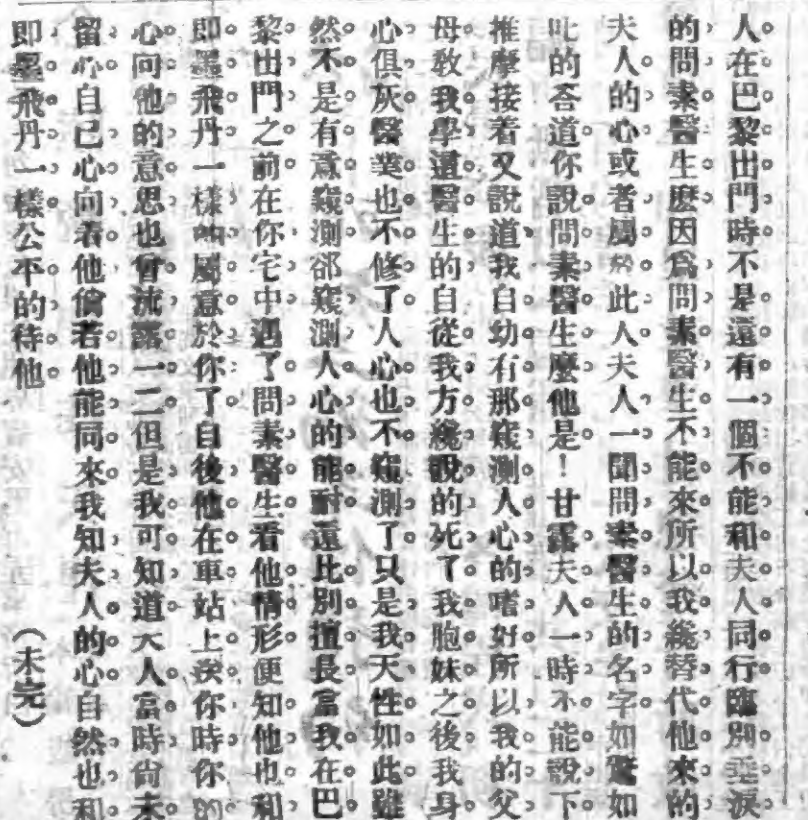 人在巴黎出門時不是還有一個不能和夫人同行臨別垂淚
的問素醫生麽因爲問素醫生不能來所以我纔替代他來的
夫人的心或者屬於此人夫人一聞問素醫生的名字如驚如
吡的荅道你說問素醫生麽他是！甘露夫人一時不能說下
推摩接着又說道我自幼有那窺測人心的嗜好所以我的父
母敎我學這醫生的自從我方纔說的死了我胞妹之後我身
心俱灰醫業也不修了人心也不窺測了只是我天性如此雖
然不是有意窺測郤窺測人心的能耐還比別擅長當我在巴
黎出門之前在你宅中遇了問素醫生看他情形便知他也和
即墨飛丹一樣屬意於你了自後他在車站上送你時你的
心向他的意思也曾流露一二但是我可知道夫人當時尙未
留心自已心向着他倘若他能同來我知夫人的心自然也和
即墨飛丹一樣公平的待他　　　　　　　　（未完）